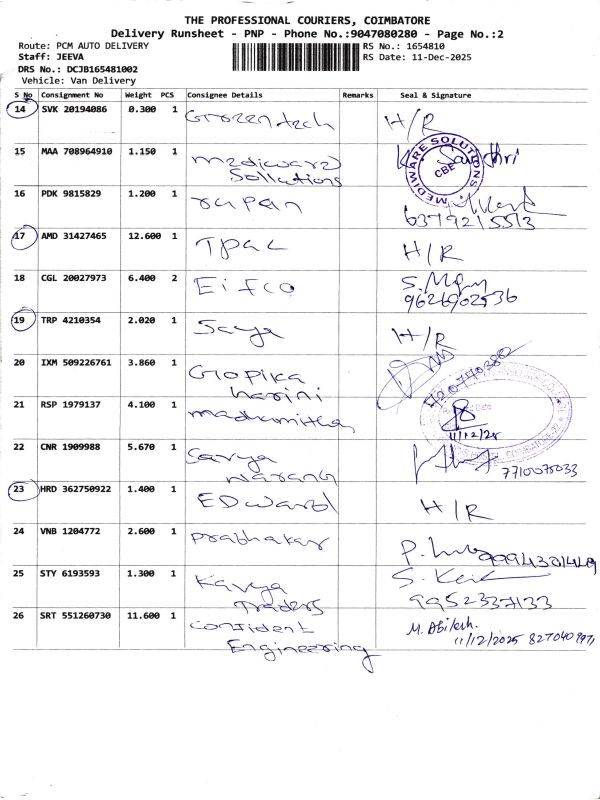 THE PROFESSIONAL COURIERS, COIMBATORE
Delivery Runsheet - PNP - Phone No.:9047080280 - Page No.:2
Route: PCM AUTO DELIVERY RS No.: 1654810
Staff: JEEVA RS Date: 11-Dec-2025
DRS No.: DCJB165481002
Vehicle: Van Delivery
S No Consignment No Weight PCS Consignee Details Remarks Seal & Signature
14 SVK 20194086 0.300 1 Grozen tech H/R
15 MAA 708964910 1.150 1 mediware
Sollutions
MEDIWARE SOLUTIONS
CBE
16 PDK 9815829 1.200 1 rupan
6379215513
17 AMD 31427465 12.600 1 Tpac H/R
18 CGL 20027973 6.400 2 Eifco
9626902536
19 TRP 4210354 2.020 1 Saya H/R
20 IXM 509226761 3.860 1 Gopika
harini
21 RSP 1979137 4.100 1 madhumitha
11/12/25
22 CNR 1909988 5.670 1 Sarya
warang
7710075033
23 HRD 362750922 1.400 1 EDward H/R
24 VNB 1204772 2.600 1 Prabhakar
25 STY 6193593 1.300 1 Kavya
Traders
9952337133
26 SRT 551260730 11.600 1 confident
Engineering
M. Abilesh.
11/12/2025